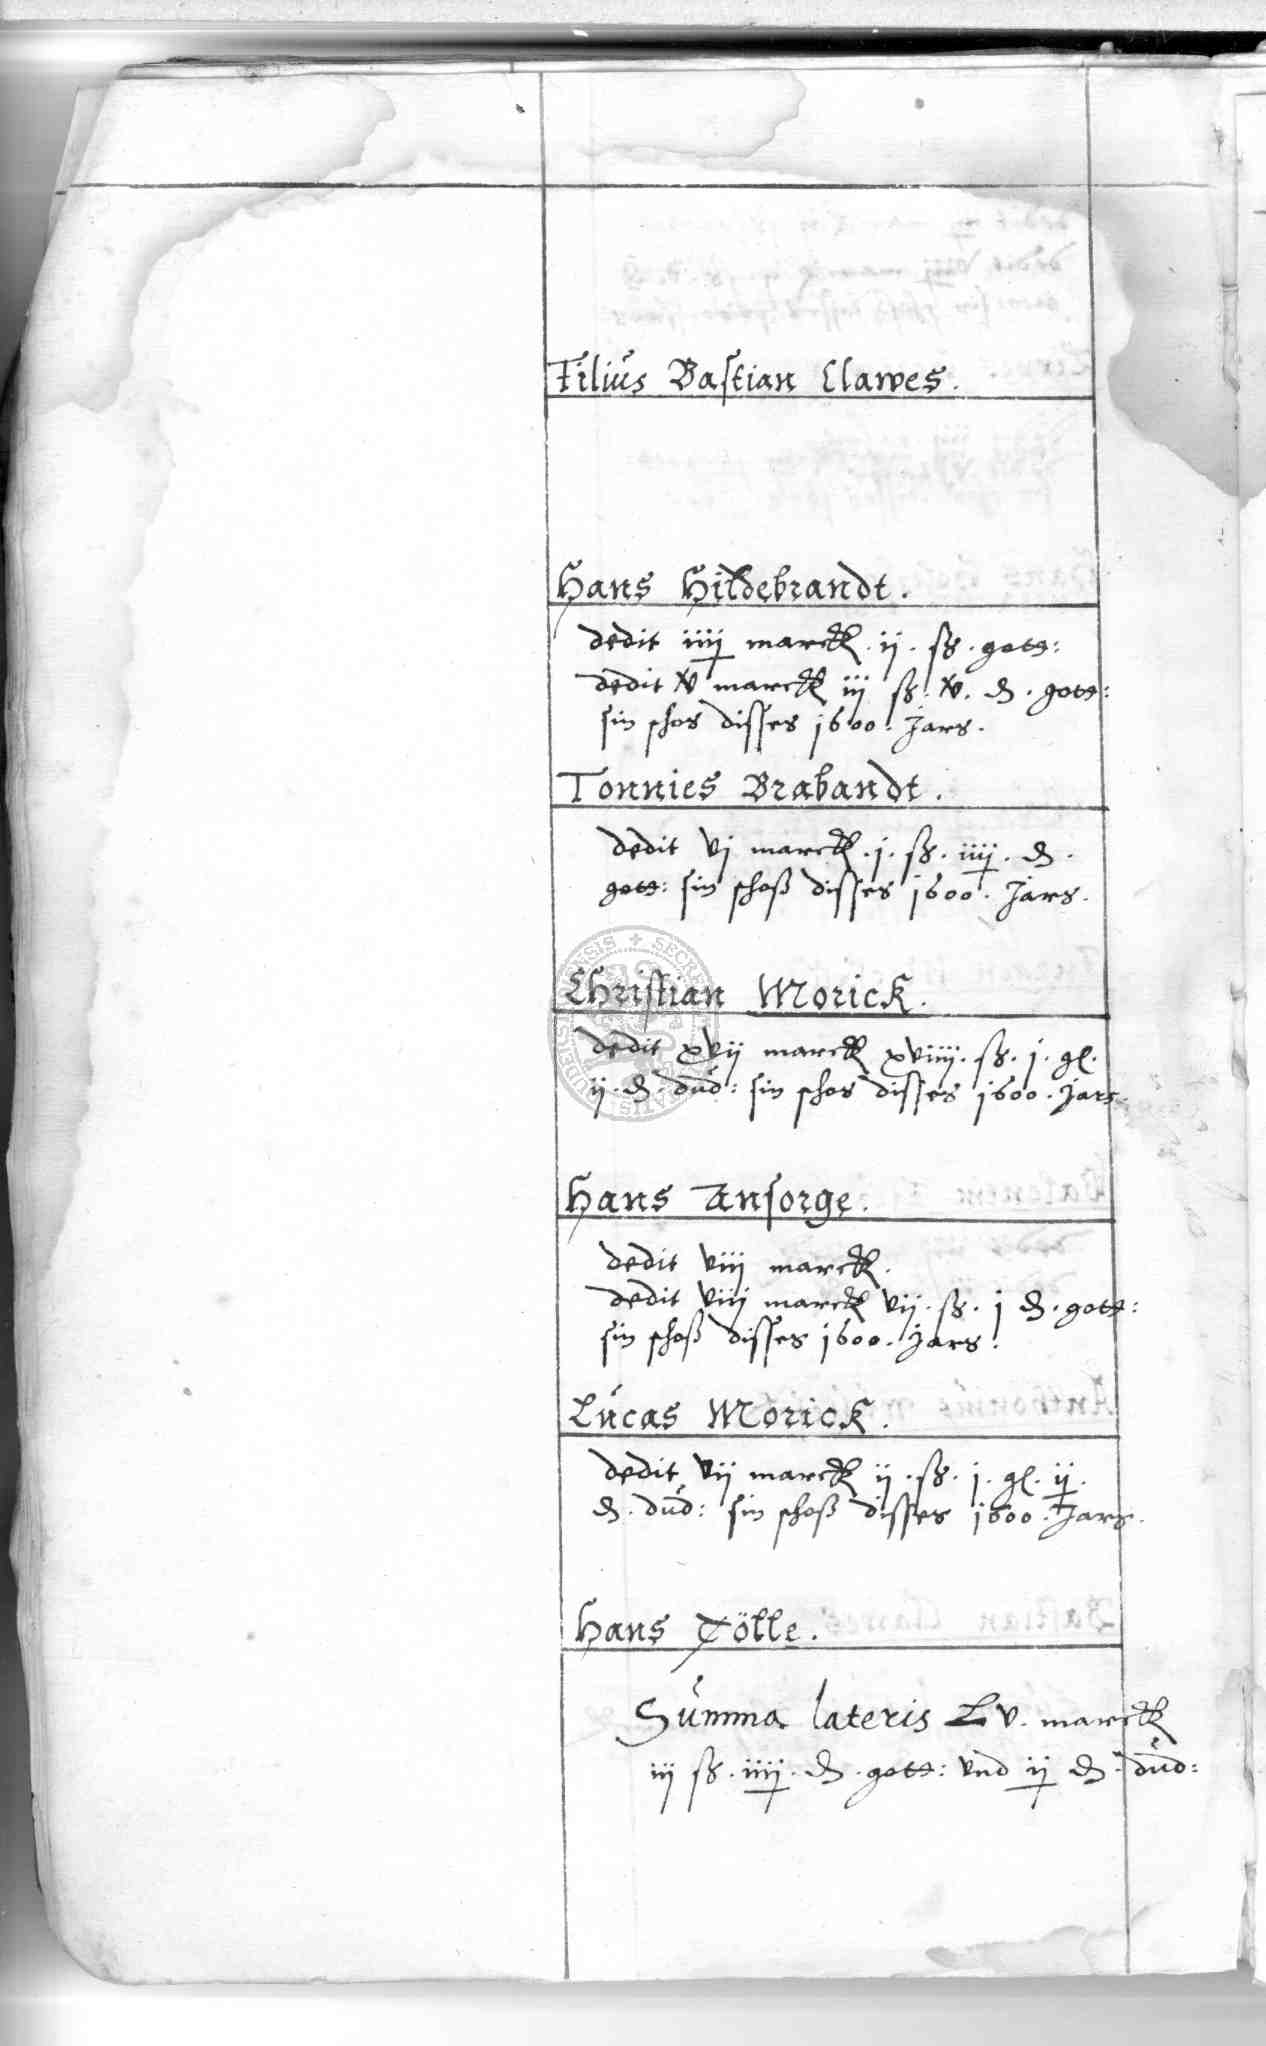 Filius Bastian Clawes.
Hans Hildebrandt.
dedit iiij marck. ij. ß. gott:
dedit v marck iij ß. v. d. gott:
sin schos disses 1600. Jars.
Tonnies Brabandt.
dedit vj marck. j. ß. iiij. d.
gott: sin schoß disses 1600. Jars.
Christian Morick.
dedit xvij marck xviiij. ß. j. gl.
ij. d. dud: sin schos disses 1600. Jars.
Hans Ansorge.
dedit viij marck.
dedit viij marck vij. ß. j d. gott:
sin schoß disses 1600. Jars.
Lucas Morick.
dedit vij marck ij. ß. j. gl. ij.
d. dud: sin schoß disses 1600. Jars.
Hans Tölle.
Summa lateris Lv. marck
iij ß. iiij. d. gott: vnd ij d. dud: